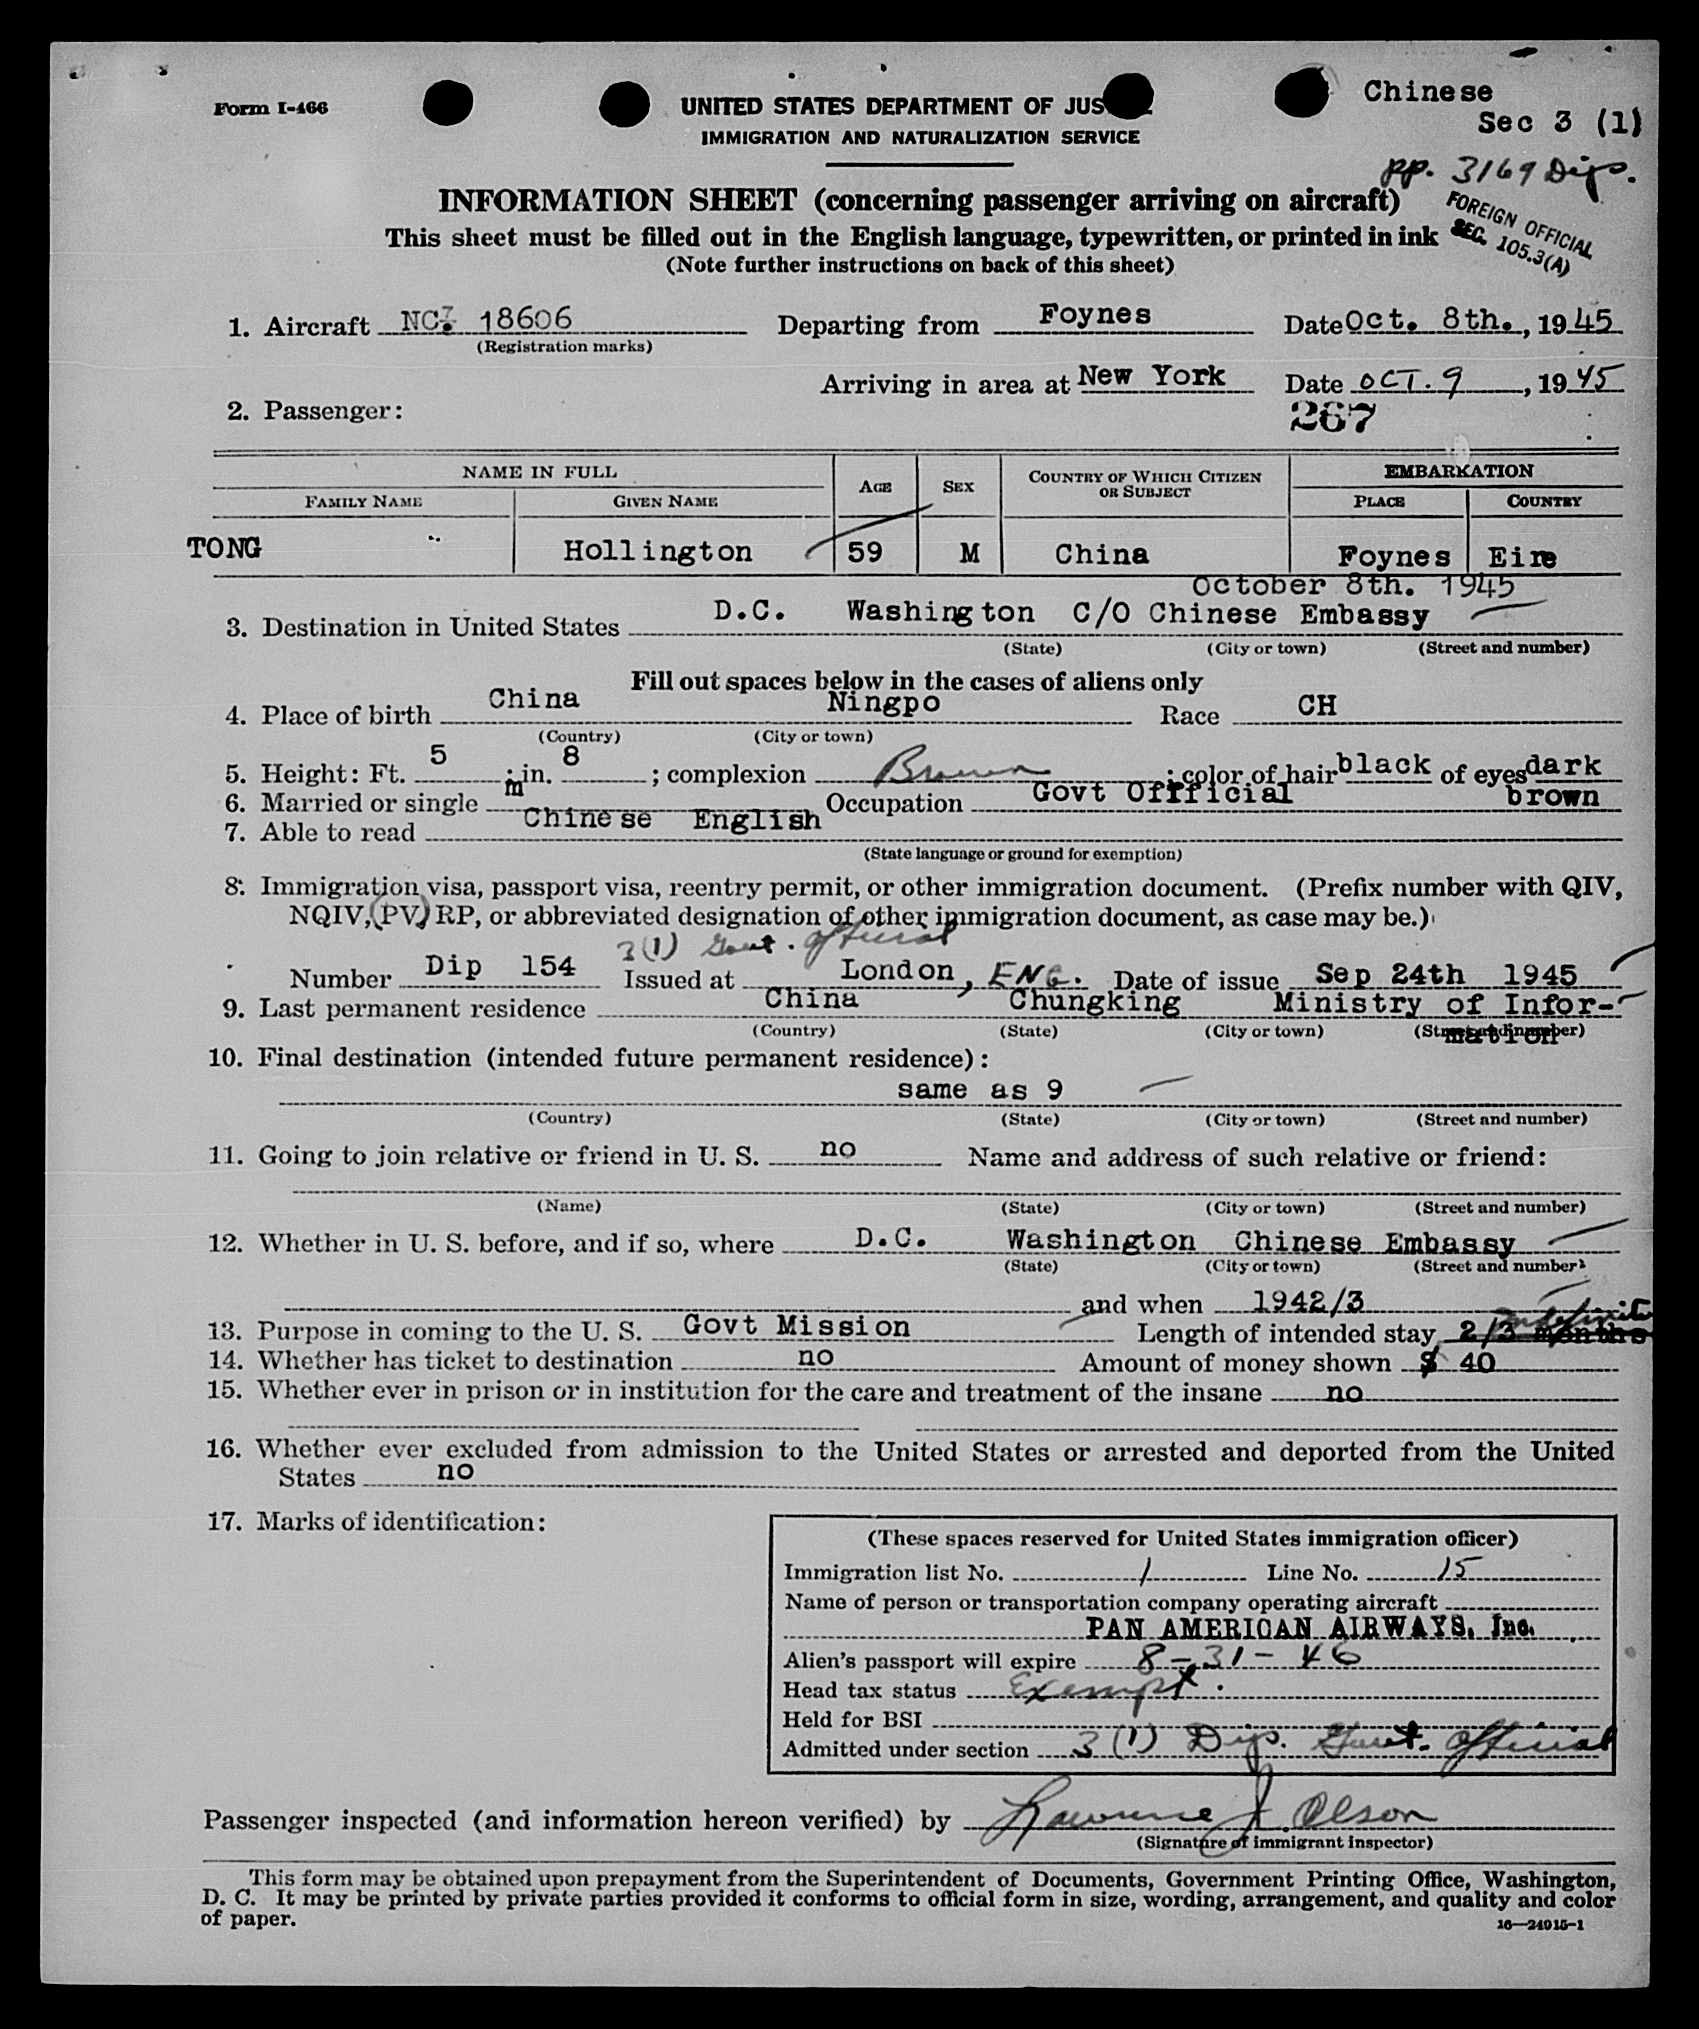 Form I-466
UNITED STATES DEPARTMENT OF JUS
IMMIGRATION AND NATURALIZATION SERVICE
Chinese
Sec 3 (1)
pp. 3169 Dip.
INFORMATION SHEET (concerning passenger arriving on aircraft)
FOREIGN OFFICIAL
SEC. 105.3(A)
This sheet must be filled out in the English language, typewritten, or printed in ink
(Note further instructions on back of this sheet)
1. Aircraft NC. 18606 Departing from Foynes Date Oct. 8th., 1945
(Registration marks)
Arriving in area at New York Date OCT. 9, 1945
2. Passenger: 267
NAME IN FULL AGE SEX COUNTRY OF WHICH CITIZEN OR SUBJECT EMBARKATION
FAMILY NAME GIVEN NAME PLACE COUNTRY
TONG Hollington 59 M China Foynes Eire
October 8th. 1945
3. Destination in United States D.C. Washington C/O Chinese Embassy
(State) (City or town) (Street and number)
Fill out spaces below in the cases of aliens only
4. Place of birth China Ningpo Race CH
(Country) (City or town)
5. Height: Ft. 5 ; in. 8 ; complexion Brown ; color of hair black of eyes dark brown
6. Married or single m Occupation Govt Offficial
7. Able to read Chinese English
(State language or ground for exemption)
8. Immigration visa, passport visa, reentry permit, or other immigration document. (Prefix number with QIV,
NQIV, (PV) RP, or abbreviated designation of other immigration document, as case may be.)
3(1) Govt. official
Number Dip 154 Issued at London, ENG. Date of issue Sep 24th 1945
9. Last permanent residence China Chungking Ministry of Infor-
(Country) (State) (City or town) (Street and number)
mation
10. Final destination (intended future permanent residence):
same as 9
(Country) (State) (City or town) (Street and number)
11. Going to join relative or friend in U. S. no Name and address of such relative or friend:
(Name) (State) (City or town) (Street and number)
12. Whether in U. S. before, and if so, where D.C. Washington Chinese Embassy
(State) (City or town) (Street and number)
and when 1942/3
13. Purpose in coming to the U. S. Govt Mission Length of intended stay 2/3 months Indefinite
14. Whether has ticket to destination no Amount of money shown $ 40
15. Whether ever in prison or in institution for the care and treatment of the insane no
16. Whether ever excluded from admission to the United States or arrested and deported from the United
States no
17. Marks of identification:
(These spaces reserved for United States immigration officer)
Immigration list No. 1 Line No. 15
Name of person or transportation company operating aircraft
PAN AMERICAN AIRWAYS, Inc.
Alien's passport will expire 8-31-46
Head tax status Exempt.
Held for BSI
Admitted under section 3 (1) Dip. Govt. official
Passenger inspected (and information hereon verified) by Lawrence J. Olson
(Signature of immigrant inspector)
This form may be obtained upon prepayment from the Superintendent of Documents, Government Printing Office, Washington,
D. C. It may be printed by private parties provided it conforms to official form in size, wording, arrangement, and quality and color
of paper.
16—24915-1